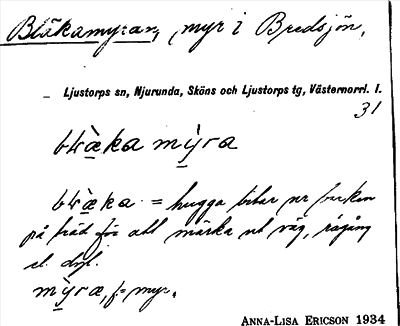 Bläkamyran, myr i Bredsjön,
Ljustorps sn, Njurunda, Sköns och Ljustorps tg, Västernorrl. l.
31
blæ̀ka mỳra
blæ̀ka = hugga bitar ur barken
på träd för att märka ut väg, rågång
el. dyl.
mỳra, f. = myr.
ANNA-LISA ERICSON 1934